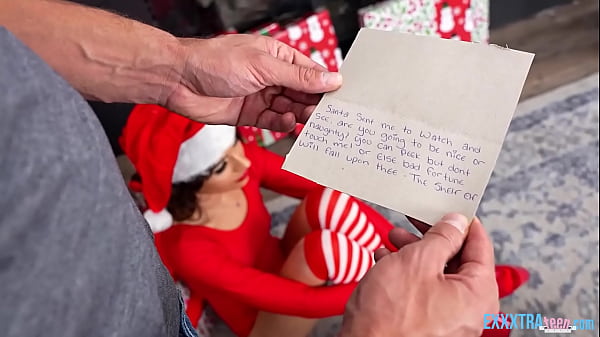 Santa Sent me to Watch and
See, are you going to be nice or
naughty! you can Peek but dont
touch me! or Else bad fortune
Will fall upon thee - The Shelf Elf
EXXXTRAteen.COM